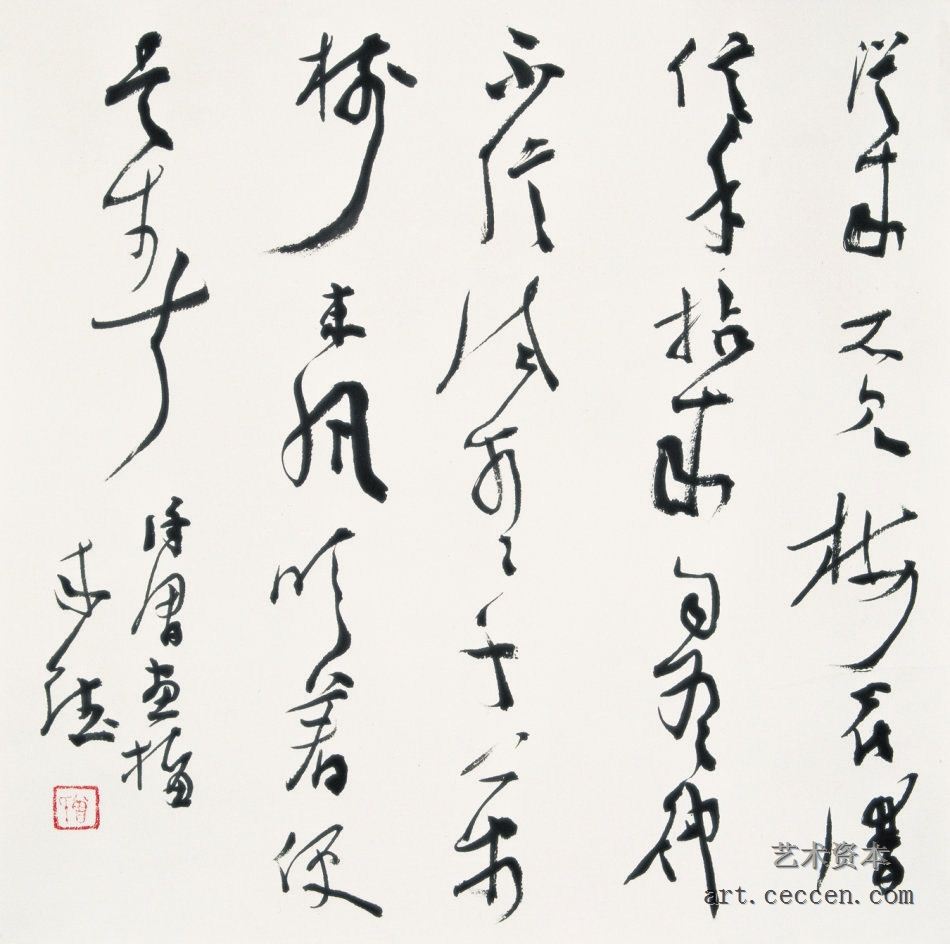 從來不見梅花譜
信手拈來自有神
不信試看千萬
樹東風吹着便
徐渭畫梅
來德
艺术资本
art.ceccen.com